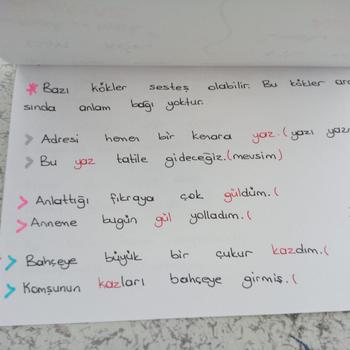 * Bazı kökler sesteş olabilir. Bu kökler ara
sında anlam bağı yoktur.
> Adresi hemen bir kenara yaz. (yazı yazm
> Bu yaz tatile gideceğiz. (mevsim)
> Anlattığı fıkraya çok güldüm. (
> Anneme bugün gül yolladım. (
> Bahçeye büyük bir çukur kazdım. (
> Komşunun kazları bahçeye girmiş. (